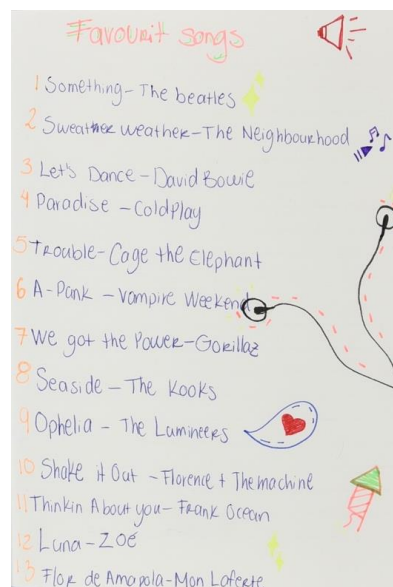 Favourit songs
1 Something - The beatles
2 Sweather weather - The Neighbourhood
3 Let's Dance - David Bowie
4 Paradise - Coldplay
5 Trouble - Cage the Elephant
6 A-Punk - Vampire Weekend
7 We got the Power - Gorillaz
8 Seaside - The Kooks
9 Ophelia - The Lumineers
10 Shake it Out - Florence + The machine
11 Thinkin About you - Frank Ocean
12 Luna - Zoé
13 Flor de Amapola - Mon Laferte